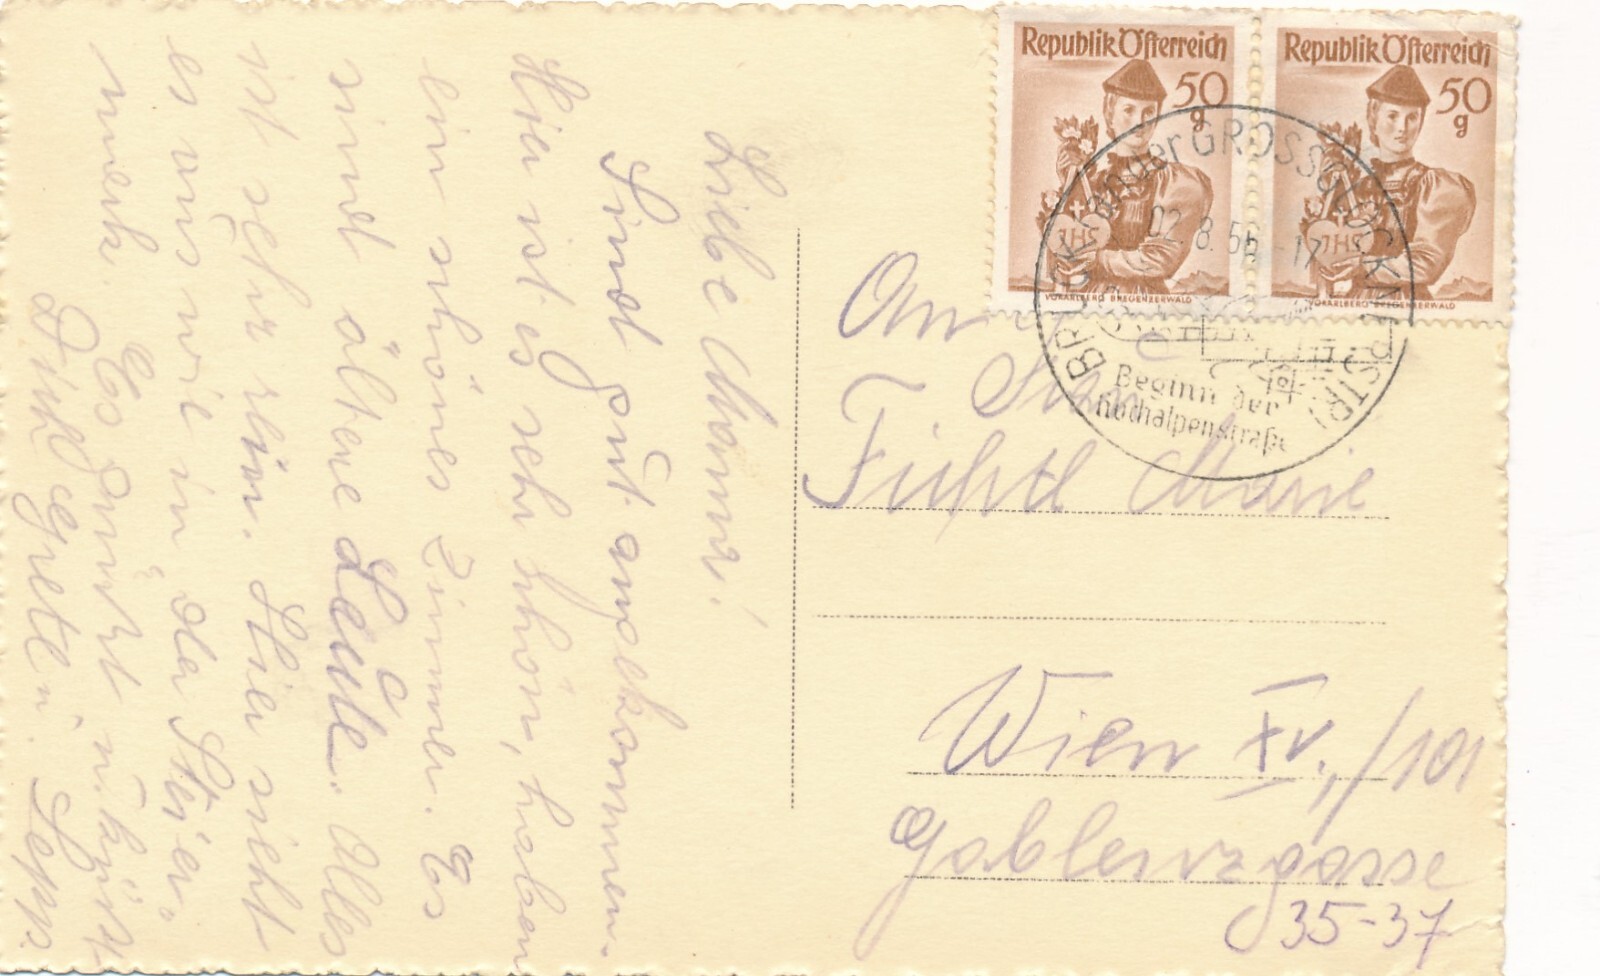 Liebe Mama!
Sind gut angekommen.
Hier ist es sehr schön, haben
ein schönes Zimmer. Es
sind ältere Leute. Alles
ist sehr rein. Hier sieht
es aus wie in der Steier-
mark. Es grüßt u. küßt
Dich Gretl u. Sepp.
Republik Österreich
50
g
VORARLBERG BREGENZERWALD
Republik Österreich
50
g
VORARLBERG BREGENZERWALD
BRUCK an der GROSSGLOCKNERSTR.
02.8.56-17
Beginn der
Hochalpenstraße
An
Frau
Marie
Wien XV./101
Gablenzgasse
35-37